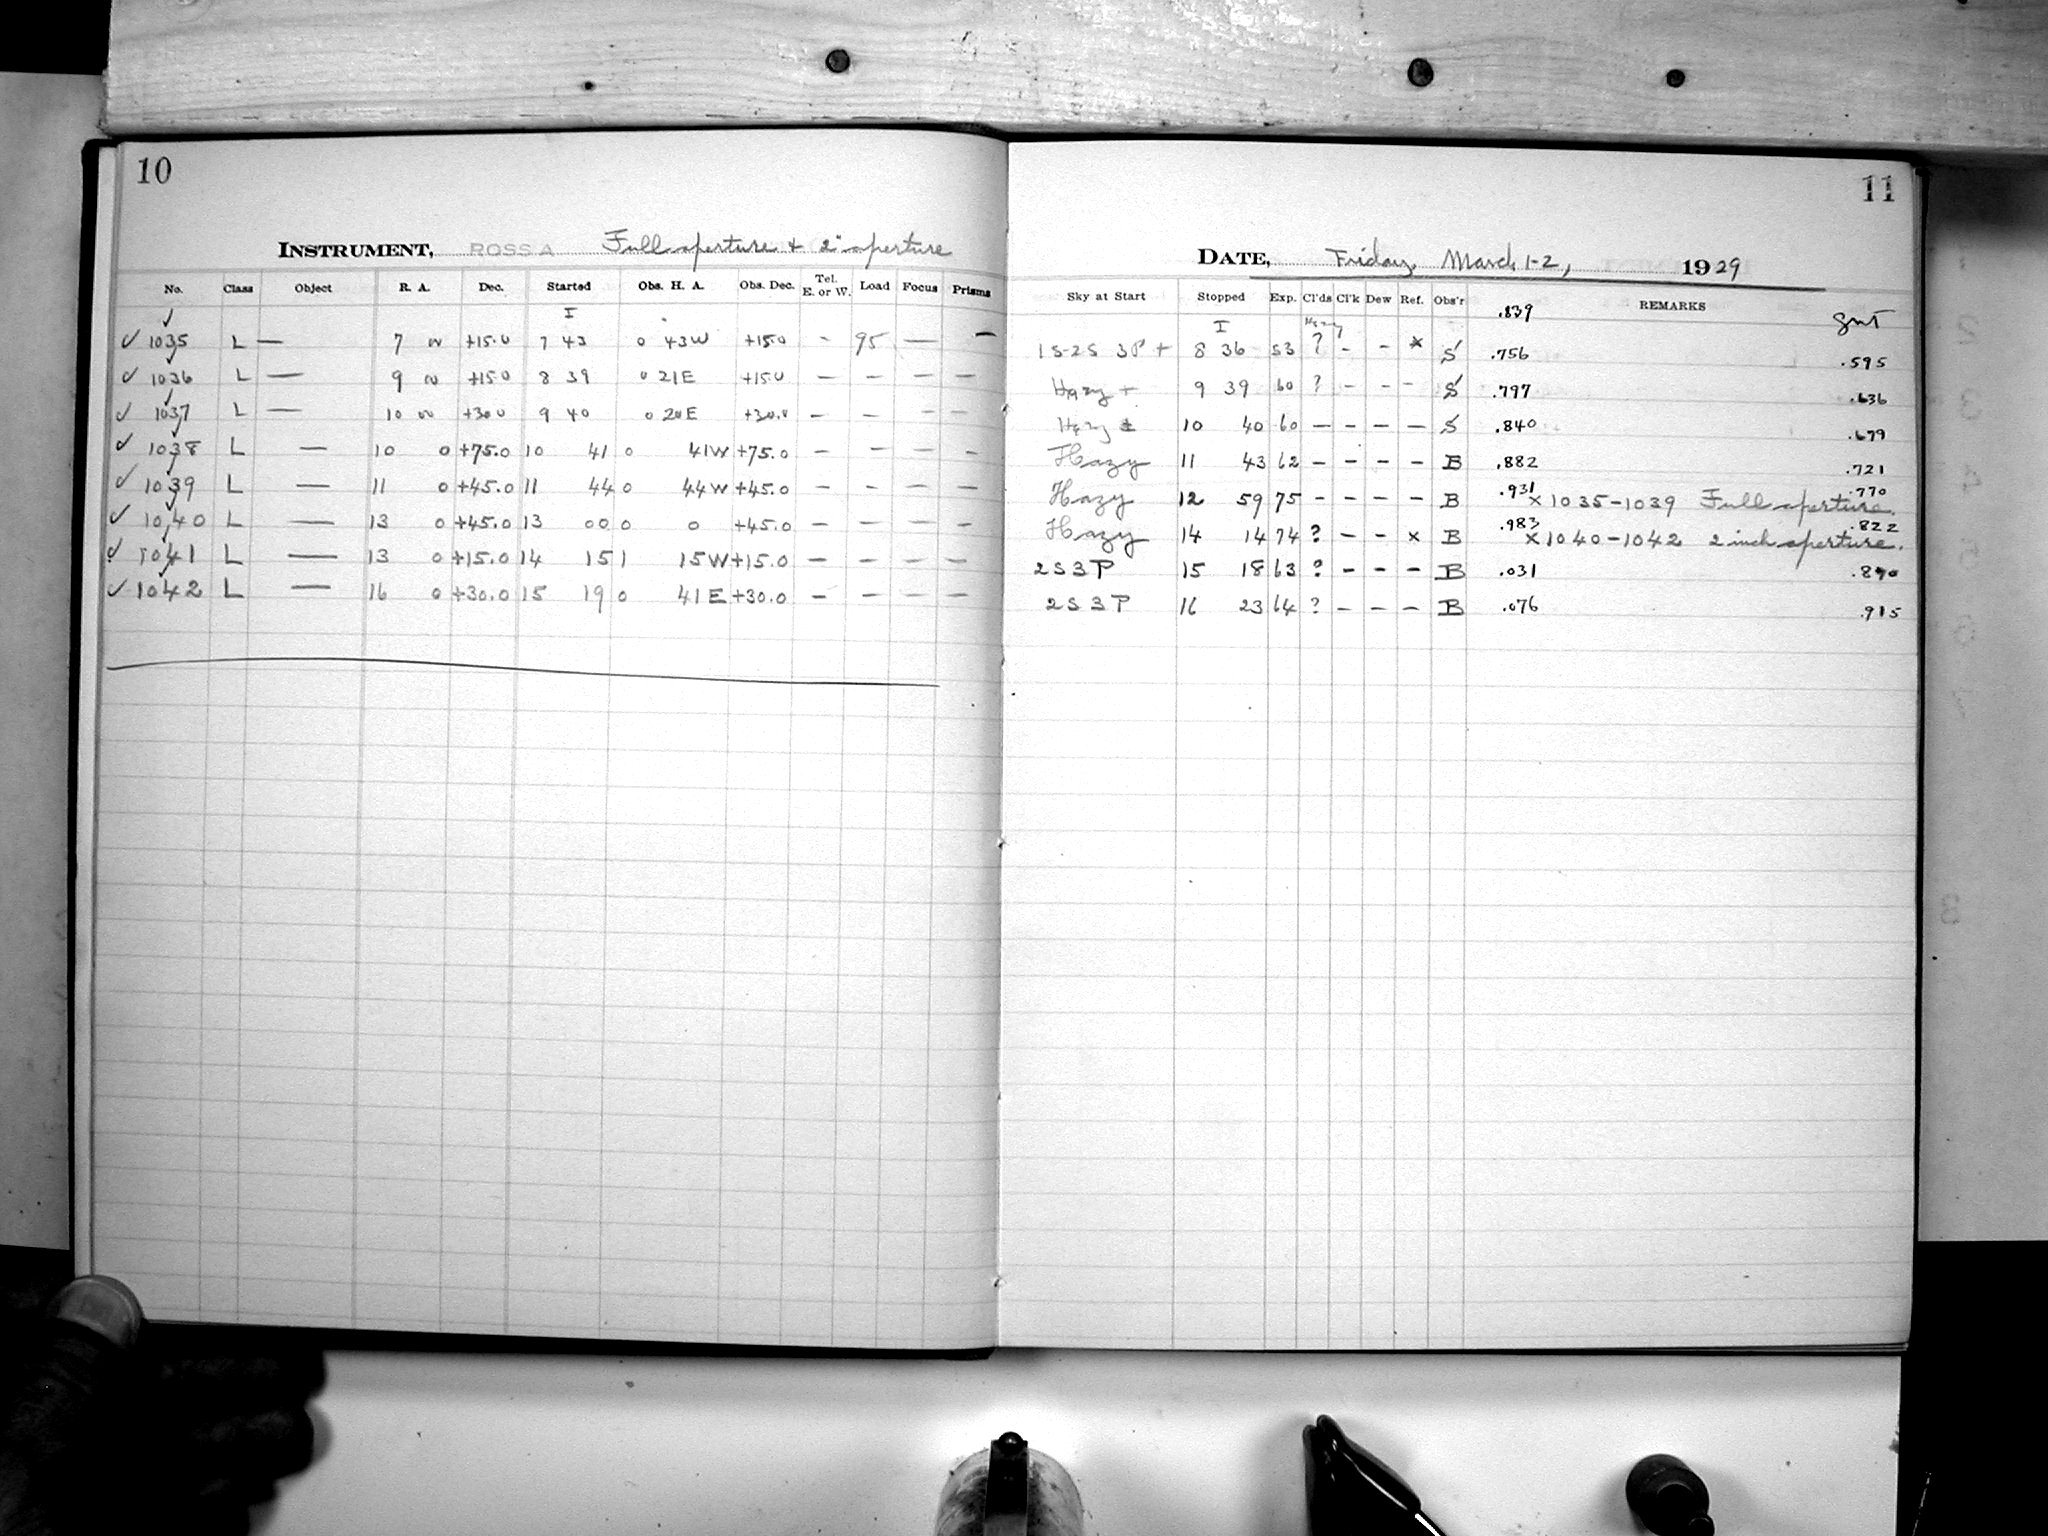 10
INSTRUMENT, ROSS A Full aperture & 2" aperture
No. Class Object R. A. Dec. Started Obs. H. A. Obs. Dec. Tel. E. or W. Load Focus Prisms
I
✓ 1035 L — 7 00 +15.0 7 43 0 43W +15.0 - 95 — —
✓ 1036 L — 9 00 +15.0 8 39 0 21E +15.0 — — — —
✓ 1037 L — 10 00 +30.0 9 40 0 20E +30.0 — — — —
✓ 1038 L — 10 0 +75.0 10 41 0 41W +75.0 — — — —
✓ 1039 L — 11 0 +45.0 11 44 0 44W +45.0 — — — —
✓ 1040 L — 13 0 +45.0 13 00 0 0 +45.0 — — — —
✓ 1041 L — 13 0 +15.0 14 15 1 15W +15.0 — — — —
✓ 1042 L — 16 0 +30.0 15 19 0 41E +30.0 — — — —
11
DATE, Friday, March 1-2, 1929
Sky at Start Stopped Exp. Cl'ds Cl'k Dew Ref. Obs'r REMARKS
.839 GMT
I Hazy
1S-2S 3P + 8 36 53 ? - - x S .756 .595
Hazy + 9 39 60 ? - - - S .797 .636
Hazy ± 10 40 60 — — — — S .840 .679
Hazy 11 43 62 — — — — B .882 .721
Hazy 12 59 75 - - - - B .931 x 1035-1039 Full aperture. .770
Hazy 14 14 74 ? - - x B .983 x 1040-1042 2 inch aperture. .822
2S3P 15 18 63 ? - - - B .031 .870
2S3P 16 23 64 ? - - - B .076 .915